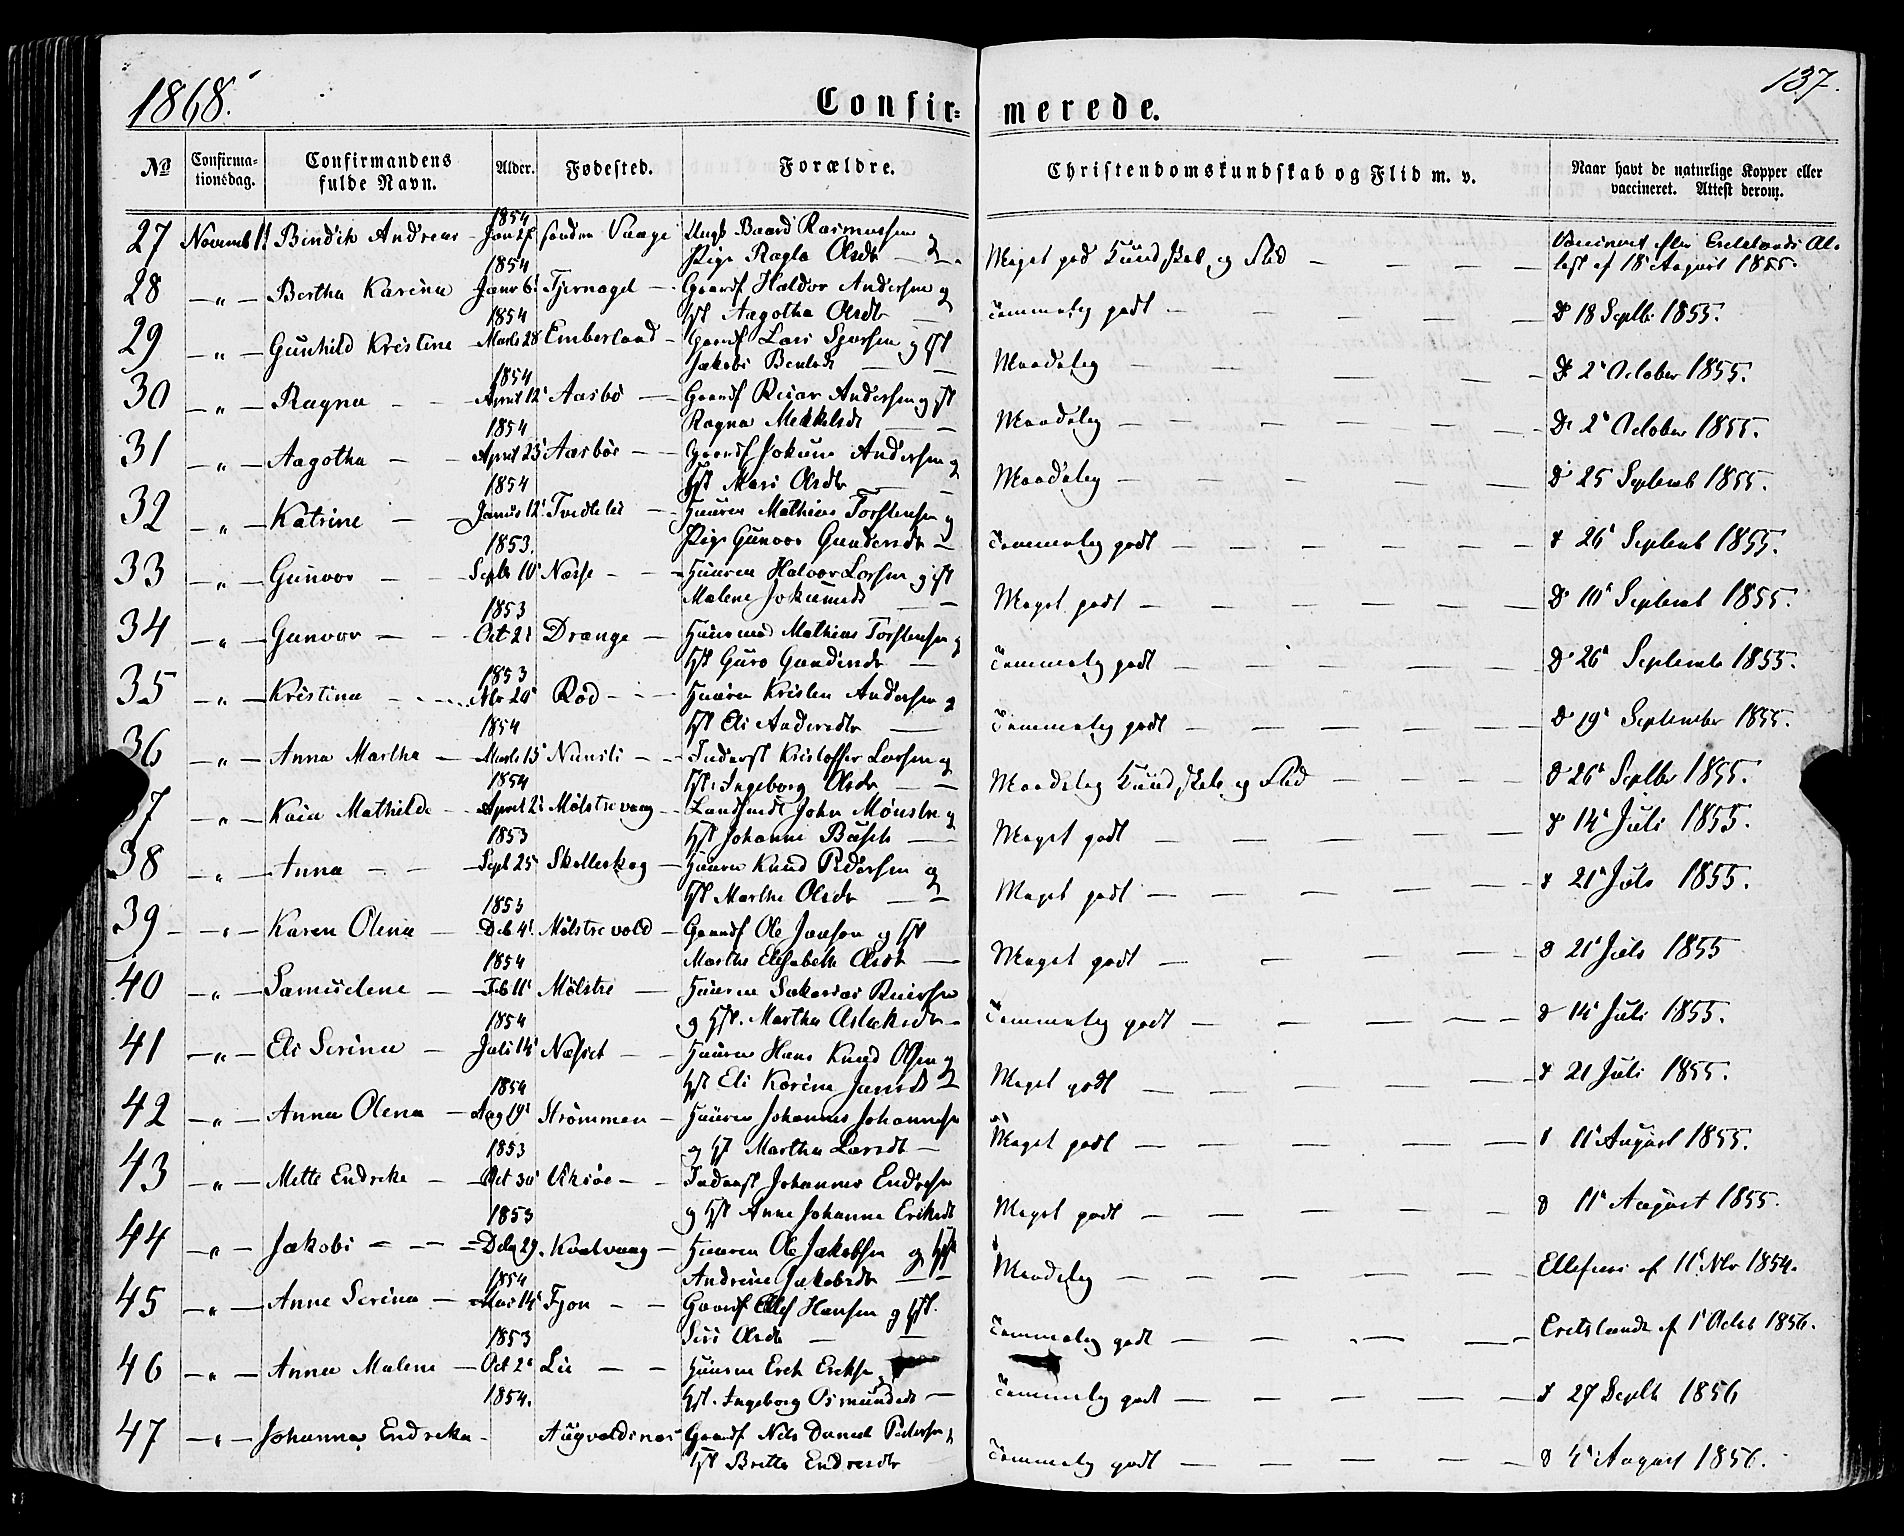 1868.
Confir=
merede.
137.
No
Confirma-
tionsdag.
Confirmandens
fulde Navn.
Alder.
Fødested.
Forældre.
Christendomskundskab og Flid m. v.
Naar havt de naturlige Kopper eller
vaccineret. Attest derom.
1854
27 Novemb 1 Bendik Andreas Jan Søndre Vaage Ungk Baard Rasmussen og
Pige Ragla Olsdtr
Meget god Kundskab og Flid
Vaccineret efter Erelands At-
test af 18 August 1855.
1854
28 " Bertha Karina Janr 6 Tjernagel Gaardf Haldor Andersen og
Hst Aagotha Olsdtr
Temmelig godt
D 18 Septbr 1855.
1854
29 " Gunhild Kristine Marts 28 Emberland Gaardf Lars Sjursen og Hst
Jakobi Bentsdt
Maadelig
D 2 October 1855.
1854
30 " Ragna April 12 Aasbø Gaardf Reiar Andersen og Hst
Ragna Mekkelsdt
Maadelig
D 2 October 1855.
1854
31 " Aagotha April 23 Aasbøe Gaardf Jokum Andersen og
Hst Mari Olsdtr
Maadelig
D 25 Septemb 1855.
1854
32 " Katrine Janur 12 Tvedtelid Huusm Mathias Torstensen og
Pige Gunvor Gundersdtr
Temmelig godt
D 26 Septemb 1855.
1853.
33 " Gunvor Septbr 10 Næsse Huusm Halvor Larsen og Hst
Malene Jokumsdt
Meget godt
D 10 Septemb 1855.
1853
34 " Gunvor Oct 21 Drange Huusmd Mathias Torstensen og
Hst Guro Gundersdtr
Temmelig godt
D 26 Septembr 1855.
1853
35 " Kristina Nbr 20 Rød Huusm Kristen Andersen og
Hst Eli Andersdtr
Temmelig godt
D 19 September 1855.
1854
36 " Anna Martha Marts 15 Nunsli Inderst Kristoffer Larsen og
Hst. Ingeborg Olsdtr
Maadelig Kundskab og Flid
D 26 Septbr 1855.
1854
37 " Kaia Mathilde April 2 Mølstrevaag Landhndl John Mønster og
Hst Johanne Busch
Meget godt
D 14 Juli 1855.
1853
38 " Anna Sept 25 Skelleskog Huusm Knud Pedersen og
Hst Martha Olsdtr
Meget godt
D 21 Juli 1855.
1853
39 " Karen Olena Deb 4 Mølstrevold Gaardf Ole Jansen og Hst
Martha Elisabeth Olsdt
Meget godt
D 21 Juli 1855
1854
40 " Samueline Feb 11 Mølstre Huusm Sakarias Reiersen
og Hst. Martha Aslaksdtr
Temmelig godt
D 14 Juli 1855.
1854
41 " Eli Serina Juli 14 Næsset Huusm Hans Knud Olsen og
Hst Eli Karine Jansdt
Meget godt
D 21 Juli 1855.
1854
42 " Anna Olena Aug 19 Strømmen Huusm Johannes Johannesen
og Hst Martha Larsdt
Meget godt
D 11 August 1855.
1853
43 " Mette Endreka Oct 30 Viksøe Inderst Johannes Endresen
og Hst Anne Johanne Eriksdt
Meget godt
D 11 August 1855.
1853
44 " Jakobi Deb 29 Kvalvaag Huusm Ole Jakobsen og Hst
Andrine Jakobsdtr
Maadelig
Ellefsens af 11 Nbr 1854.
1854
45 " Anne Serina Mai 14 Fjon Gaardf Ellef Hansen og Hst.
Siri Olsdt
Temmelig godt
Eretslands af 1 Octob 1856.
1853
46 " Anna Malene Oct 2 Lie Huusm Erik Eriksen og
Hst. Ingeborg Osmundsdt
Temmelig godt
D 27 Septb 1856
1854.
47 " Johanna Endreka Augvaldsnæs Gaardf Nils Daniel Pedersen og
Hst Britta Endresdtr
Temmelig godt
D 4 August 1856.